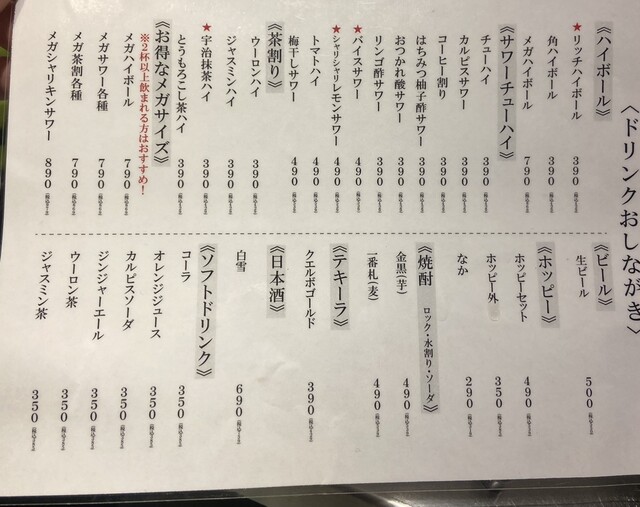 〈ドリンクおしながき〉
《ハイボール》
★リッチハイボール 390
角ハイボール 390
メガハイボール 790
《サワーチューハイ》
チューハイ 390
カルピスサワー 390
コーヒー割り 390
はちみつ柚子酢サワー 390
おつかれ酸サワー 390
リンゴ酢サワー 390
★バイスサワー 490
★シャリシャリレモンサワー 490
トマトハイ 490
梅干しサワー 490
《茶割り》
ウーロンハイ 390
ジャスミンハイ 390
★宇治抹茶ハイ 390
とうもろこし茶ハイ 390
《お得なメガサイズ》
※2杯以上飲まれる方はおすすめ!
メガハイボール 790
メガサワー各種 790
メガ茶割各種 790
メガシャリキンサワー 890
《ビール》
生ビール 500
《ホッピー》
ホッピーセット 490
ホッピー外 350
なか 290
《焼酎 ロック・水割り・ソーダ》
金黒(芋) 490
一番札(麦) 490
《テキーラ》
クエルボゴールド 390
《日本酒》
白雪 690
《ソフトドリンク》
コーラ 350
オレンジジュース 350
カルピスソーダ 350
ジンジャーエール 350
ウーロン茶 350
ジャスミン茶 350